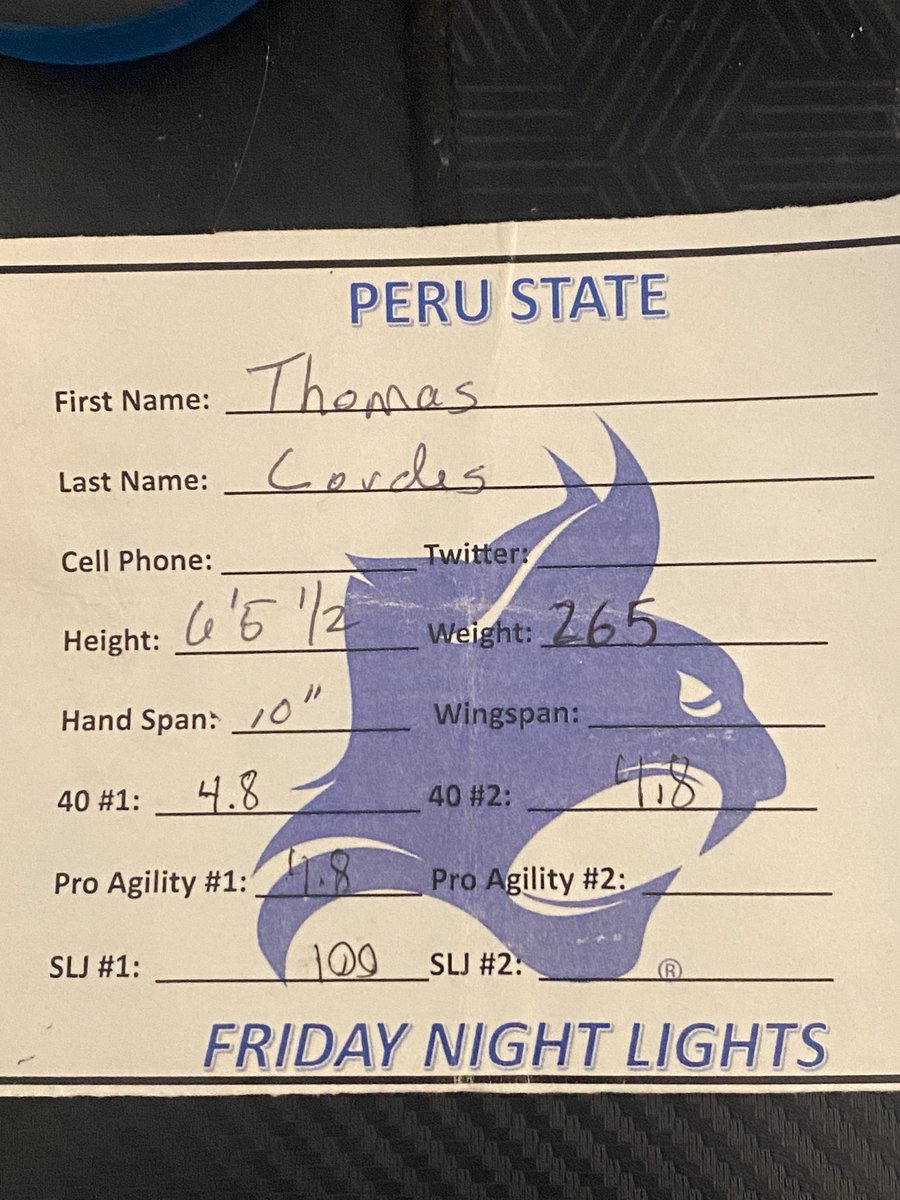 PERU STATE
First Name: Thomas
Last Name: Cordes
Cell Phone: Twitter:
Height: 6'5 1/2 Weight: 265
Hand Span: 10" Wingspan:
40 #1: 4.8 40 #2: 4.8
Pro Agility #1: 4.8 Pro Agility #2:
SLJ #1: 100 SLJ #2:
®
FRIDAY NIGHT LIGHTS